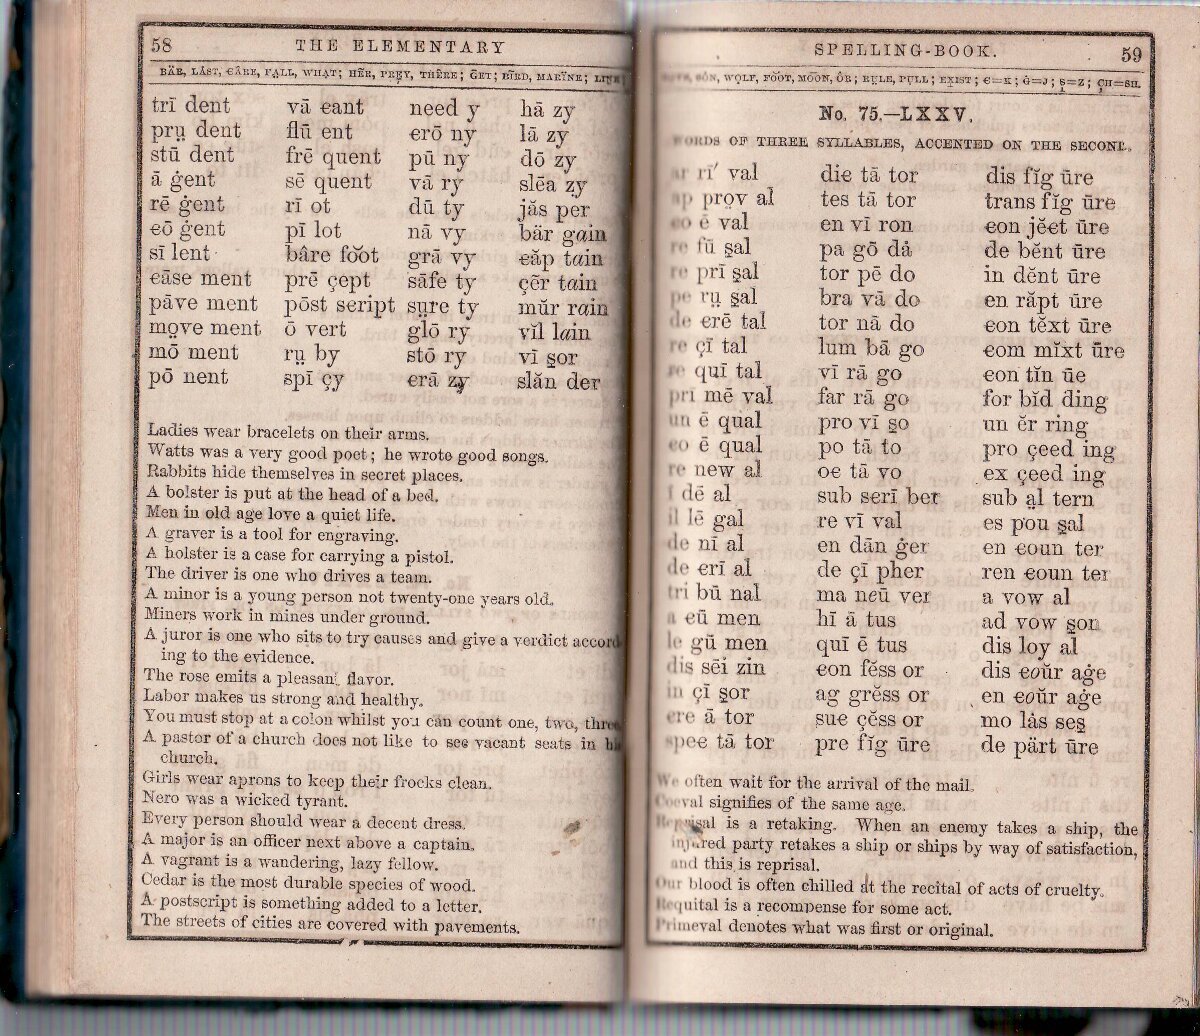 58 THE ELEMENTARY
BÄR, LÅST, ЄÂRE, FA̤LL, WHA̤T; HẼR, PRE̱Y, THÊRE; ḠET; BĨRD, MARÏNE; LIṈK
trī dent vā єant need y hā zy
prṳ dent flū ent єrō ny lā zy
stū dent frē quent pū ny dō zy
ā ġent sē quent vā ry slēa zy
rē ġent rī ot dū ty jăs per
єō ġent pī lot nā vy bär gain
sī lent bâre fo͝ot grā vy єăp tain
єāse ment prē çept sāfe ty çẽr tain
pāve ment pōst seript sṳre ty mŭr rain
mo̤ve ment ō vert glō ry vĭl lain
mō ment rṳ by stō ry vī s̱or
pō nent spī çy єrā zy slăn der
Ladies wear bracelets on their arms.
Watts was a very good poet; he wrote good songs.
Rabbits hide themselves in secret places.
A bolster is put at the head of a bed.
Men in old age love a quiet life.
A graver is a tool for engraving.
A holster is a case for carrying a pistol.
The driver is one who drives a team.
A minor is a young person not twenty-one years old.
Miners work in mines under ground.
A juror is one who sits to try causes and give a verdict accord-
ing to the evidence.
The rose emits a pleasant flavor.
Labor makes us strong and healthy.
You must stop at a colon whilst you can count one, two, three.
A pastor of a church does not like to see vacant seats in his
church.
Girls wear aprons to keep their frocks clean.
Nero was a wicked tyrant.
Every person should wear a decent dress.
A major is an officer next above a captain.
A vagrant is a wandering, lazy fellow.
Cedar is the most durable species of wood.
A postscript is something added to a letter.
The streets of cities are covered with pavements.
SPELLING-BOOK. 59
SȮN, WO̤LF, FO͝OT, MO͞ON, ÔR; RṲLE, PṲLL; EX̱IST; Є=K; Ġ=J; S̱=Z; ÇH=SH.
No. 75.—LXXV.
WORDS OF THREE SYLLABLES, ACCENTED ON THE SECOND.
ar rī′ val diє tā tor dis fĭg ūre
ap pro̤v al tes tā tor trans fĭg ūre
єo ē val en vī ron єon jĕєt ūre
re fū s̱al pa gō dȧ de bĕnt ūre
re prī s̱al tor pē do in dĕnt ūre
pe rṳ s̱al bra vā do en răpt ūre
de єrē tal tor nā do єon tĕxt ūre
re çī tal lum bā go єom mĭxt ūre
re quī tal vī rā go єon tĭn ūe
prī mē val far rā go for bĭd ding
un ē qual pro vī s̱o un ĕr ring
єo ē qual po tā to pro çeed ing
re new al oє tā vo ex çeed ing
ī dē al sub serī ber sub a̤l tern
il lē gal re vī val es pou s̱al
de nī al en dān ġer en єoun ter
de єrī al de çī pher ren єoun ter
tri bū nal ma neū ver a vow al
a єū men hī ā tus ad vow s̱on
le gū men quī ē tus dis loy al
dis sēi zin єon fĕss or dis єoŭr aġe
in çī s̱or ag grĕss or en єoŭr aġe
єre ā tor suє çĕss or mo lȧs ses̱
speє tā tor pre fĭg ūre de pärt ūre
We often wait for the arrival of the mail.
Coeval signifies of the same age.
Reprisal is a retaking. When an enemy takes a ship, the
injured party retakes a ship or ships by way of satisfaction,
and this is reprisal.
Our blood is often chilled at the recital of acts of cruelty.
Requital is a recompense for some act.
Primeval denotes what was first or original.